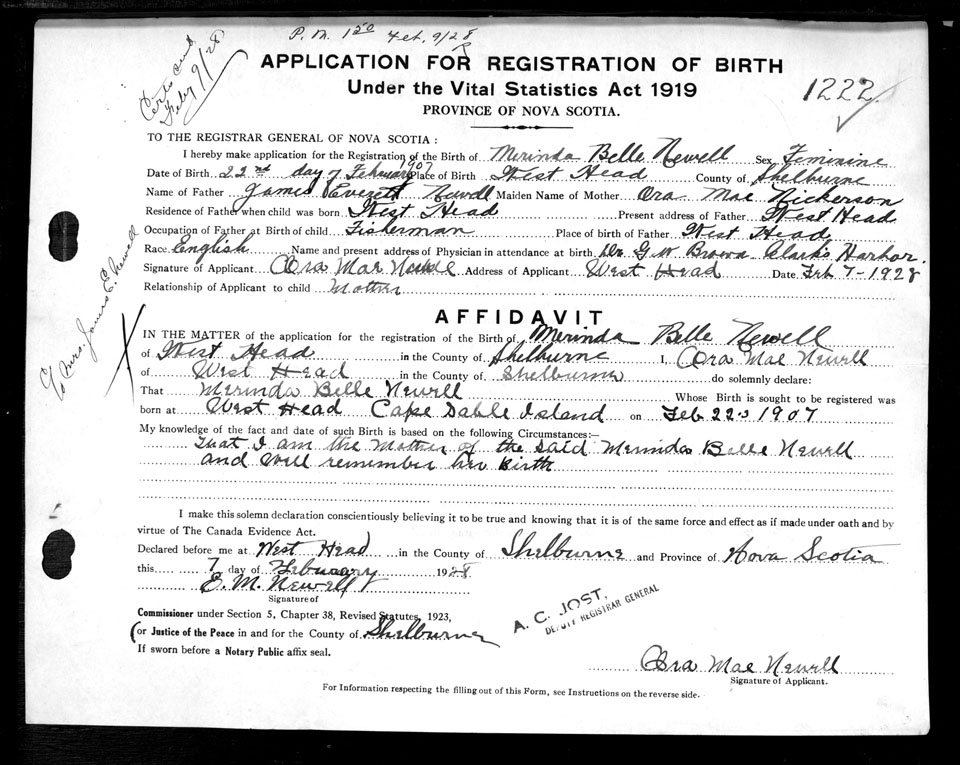 P.M. 1 50 Feb. 9/28
Certs sent
Feby 9/28
APPLICATION FOR REGISTRATION OF BIRTH
1222
Under the Vital Statistics Act 1919
PROVINCE OF NOVA SCOTIA.
TO THE REGISTRAR GENERAL OF NOVA SCOTIA :
I hereby make application for the Registration of the Birth of Merinda Belle Newell Sex Feminine
Date of Birth 22nd day of February 1907 Place of Birth West Head County of Shelburne
Name of Father James Everett Newell Maiden Name of Mother Ora Mae Nickerson
Residence of Father when child was born West Head Present address of Father West Head
Occupation of Father at Birth of child Fisherman Place of birth of Father West Head
Race English Name and present address of Physician in attendance at birth Dr G.W Brown Clarks Harbor.
Signature of Applicant Ora Mae Newell Address of Applicant West Head Date Feb 7-1928
Relationship of Applicant to child Mother
c/o Mrs. James E. Newell
AFFIDAVIT
IN THE MATTER of the application for the registration of the Birth of Merinda Belle Newell
of West Head in the County of Shelburne I, Ora Mae Newell
of West Head in the County of Shelburne do solemnly declare:
That Merinda Belle Newell Whose Birth is sought to be registered was
born at West Head Cape Sable Island on Feb 22 1907
My knowledge of the fact and date of such Birth is based on the following Circumstances:—
That I am the Mother of the said Merinda Belle Newell
and well remember her Birth
I make this solemn declaration conscientiously believing it to be true and knowing that it is of the same force and effect as if made under oath and by
virtue of The Canada Evidence Act.
Declared before me at West Head in the County of Shelburne and Province of Nova Scotia
this 7 day of February 1928
E. M. Newell
Signature of
Commissioner under Section 5, Chapter 38, Revised Statutes, 1923,
(or Justice of the Peace in and for the County of Shelburne
If sworn before a Notary Public affix seal.
A. C. JOST,
DEPUTY REGISTRAR GENERAL
Ora Mae Newell
Signature of Applicant.
For Information respecting the filling out of this Form, see Instructions on the reverse side.